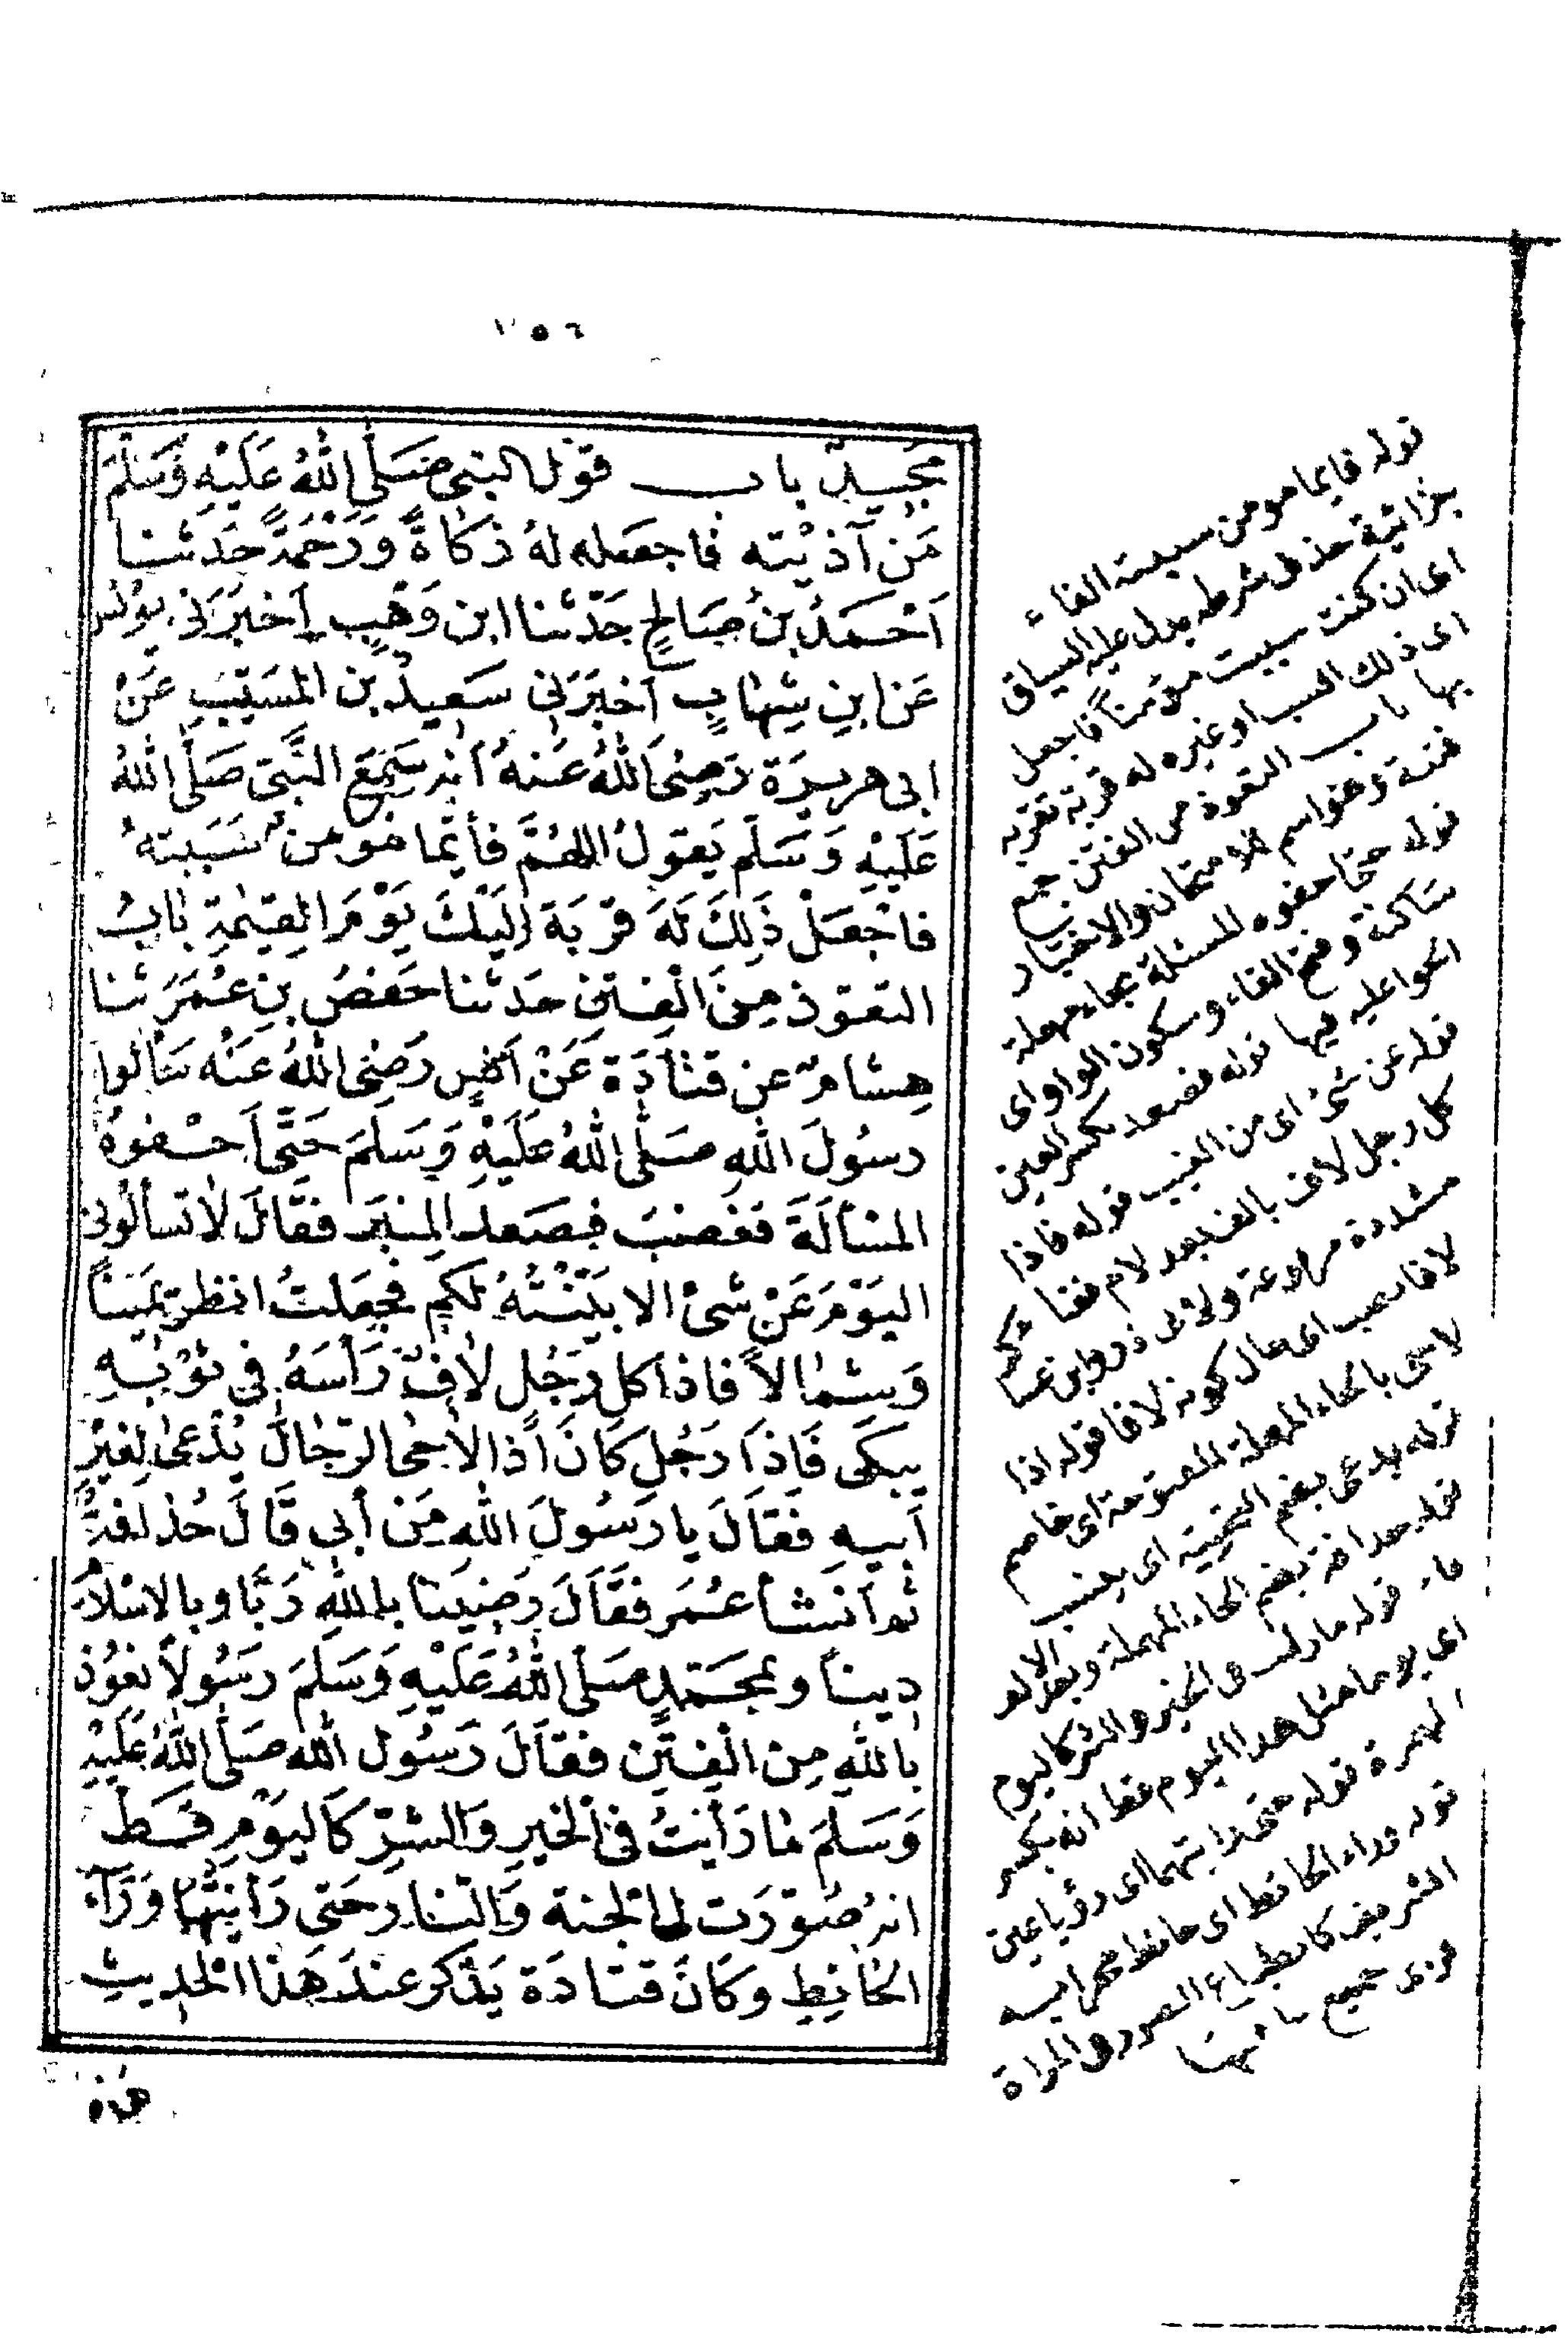 ٣٥٦
مَجِيدٌ باب قَوْل النبى صَلَّى اللهُ عَلَيْهِ وَسَلَّمَ
مَن آذَيْته فاجعله لهُ زَكَاةً وَرَحْمَةً حَدثنا
اَحْمَدُ بنُ صَالِحٍ حَدّثنا ابن وَهْبٍ اَخبَرَنى يونُس
عَن ابنِ شِهَابٍ اَخبَرَنى سَعِيدُ بن المسَيّبِ عَنْ
ابى هريرَة رَضِىَ اللهُ عَنهُ اَنه سَمِعَ النَّبىَّ صَلَّى اللهُ
عَلَيْهِ وَسَلَّم يَقولُ اللهُمَّ فأيُّما مؤمن سَبَبتهُ
فاجْعَلْ ذَلِكَ لَهَ قربَة اِلَيْكَ يَوْمَ القِيمٰةِ بابُ
التعَوّذ مِنَ الْفِتَنِ حَدثنا حَفصُ بنِ عُمَرَ ثنا
هِشام عن قتادَة عَنْ اَنَسٍ رَضِىَ اللهُ عَنْه سَألوا
رسُولَ اللهِ صَلَّى اللهُ عَلَيْهِ وَسَلَمَ حَتَّى اَحْفوهُ
المسْألَةَ فغضبَ فصَعد المِنبَر فقَالَ لا تسألونى
اليَوْمَ عَنْ شىْ الا بَيَّنْتُهُ لكم فجعَلتُ انظر يَمَينًا
وَشمالاً فاذا كل رَجُل لافّ رَأسَهُ فى ثوْبهِ
يبكى فَاِذَا رَجُل كَانَ اذا لاحى الرّجَالَ يُدْعى لِغيْرِ
اَبيهِ فَقَالَ يا رَسُولَ اللهِ مَن أبى قَالَ حُذافةُ
ثم اَنشأ عُمَر فقَّالَ رَضِينَا باللهِ رَبًّا وبالاسْلامِ
دِينًا وبمحَمّدٍ صَلَّى اللهُ عَلَيْهِ وَسَلَمَ رَسُولاً نعوُذ
باللهِ مِنَ الْفِتَنِ فقَالَ رَسُول الله صَلَّى اللهُ عَلَيْهِ
وَسَلَمَ مَا رَأَيتُ فى الخَيرِ وَالشرِّ كَاليَوْمِ قَطُّ
انهُ صُوِّرَت لى الجنة وَالنارِ حَتى رَأيتُهُما وَرَآء
الحَائِطِ وكَانَ قتادَة يَذكر عندَ هَذا الحَديثِ
هذه
قوله فايما مومن سببته الفاء
جزائية حذف شرطه يدل عليه السياق
اى ان كنت سببت مؤمناً فاجعل
اى ذلك السب او غيره له قربة تقربه
بها باب التعوذ من الفتن جمع
فتنة وهو اسم الامتحان والاختبار
قوله حتى احفوه المسئلة بحاء مهملة
ساكنة وفتح الفاء وسكون الواو اى
الحوا عليه فيها قوله فصعد بكسر العين
قوله عن شئ اى من الغيب قوله فاذا
كل رجل لاف بالف بعد لام ففاء
مشددة مرفوعة ولابى ذر وابن عساكر
لافا بنصب اى حال كونه لافا قوله اذا
لاحى بالحاء المهملة المفتوحة اى خاصم
قوله يدعى بضم التحتية اى ينسب
قوله حذافة بضم الحاء المهملة وبعد الالف
فاء قوله ما رايت فى الخير والشر كاليوم
اى يوما مثل هذا اليوم قط انه بكسر
الهمزة قوله حتى رايتهما اى رؤيا عين
قوله وراء الحائط اى حائط محرابه
الشريف كانطباع الصور فى المراة
فراى جميع ما فيها